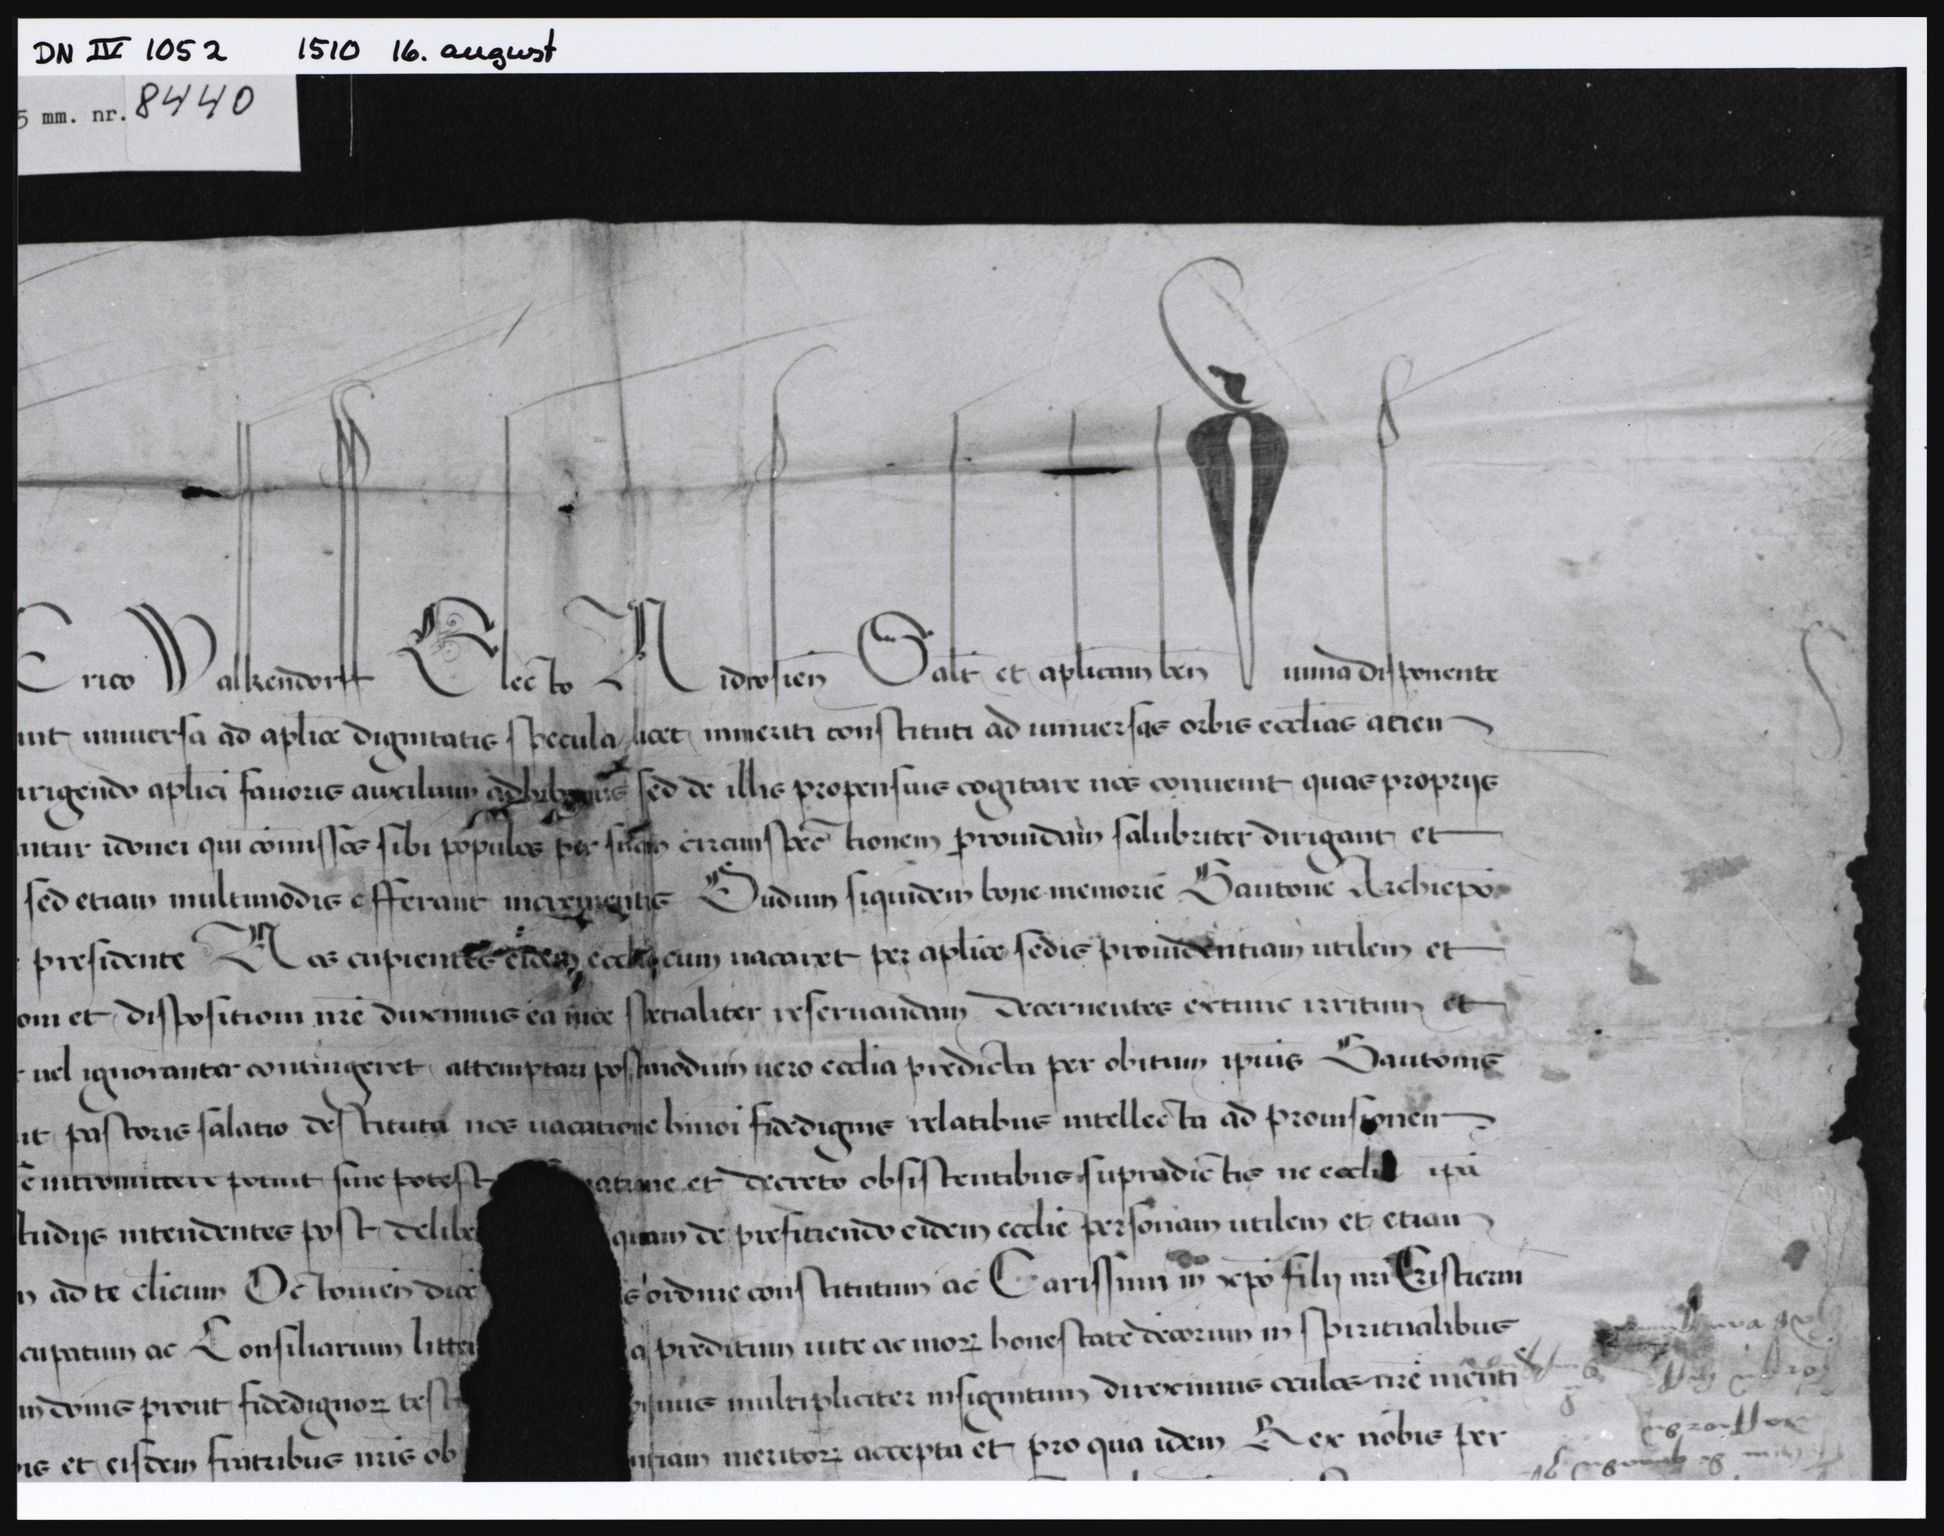 DN IV 1052 1510 16. august
5 mm. nr. 8440
Erico Walkendorff Electo Nidrosien Salt et aplicam ben iuina disponente
unt uniuersa ad aplice dignitatis specula licet inmeriti constituti ad uniuersas orbis ecclias acien
irigendo aplici fauoris auxilium adhibemus sed de illis propensius cogitare nos conuenit quas proprijs
untur idonei qui comissos sibi populos per suam circumspectionem prouidam salubriter dirigant et
sed etiam multimodis efferant incrementis Dudum siquidem bone memorie Gautone Archiepo
presidente Nos cupientes eidem ecclie cum uacaret per aplice sedis prouidentiam utilem et
oni et dispositioni nre duximus ea uice specialiter reseruandam decernentes extunc irritum et
uel ignoranter contingeret attemptari postmodum uero ecclia predicta per obitum ipius Gautonis
it pastoris salatio destituta nos uacatione hmoi fidedignis relatibus intellecta ad prouisionem
e intromittere potuit siue potest et decreto obsistentibus supradictis ne ecclia ipa
tudijs intendentes post delibe quam de preficiendo eidem ecclie personam utilem et etiam
n ad te clicum Octonien dioc s ordine constitutum ac Carissimi in xpo filij nri Cristierni
cupatum ac Consiliarium litter a preditum uite ac mor honestate decorum in spiritualibus
in donis prout fidedignor test multipliciter insignitum direximus oculos nre menti
is et eisdem fratribus nris ob ntiam meritor accepta et pro qua idem Rex nobis per